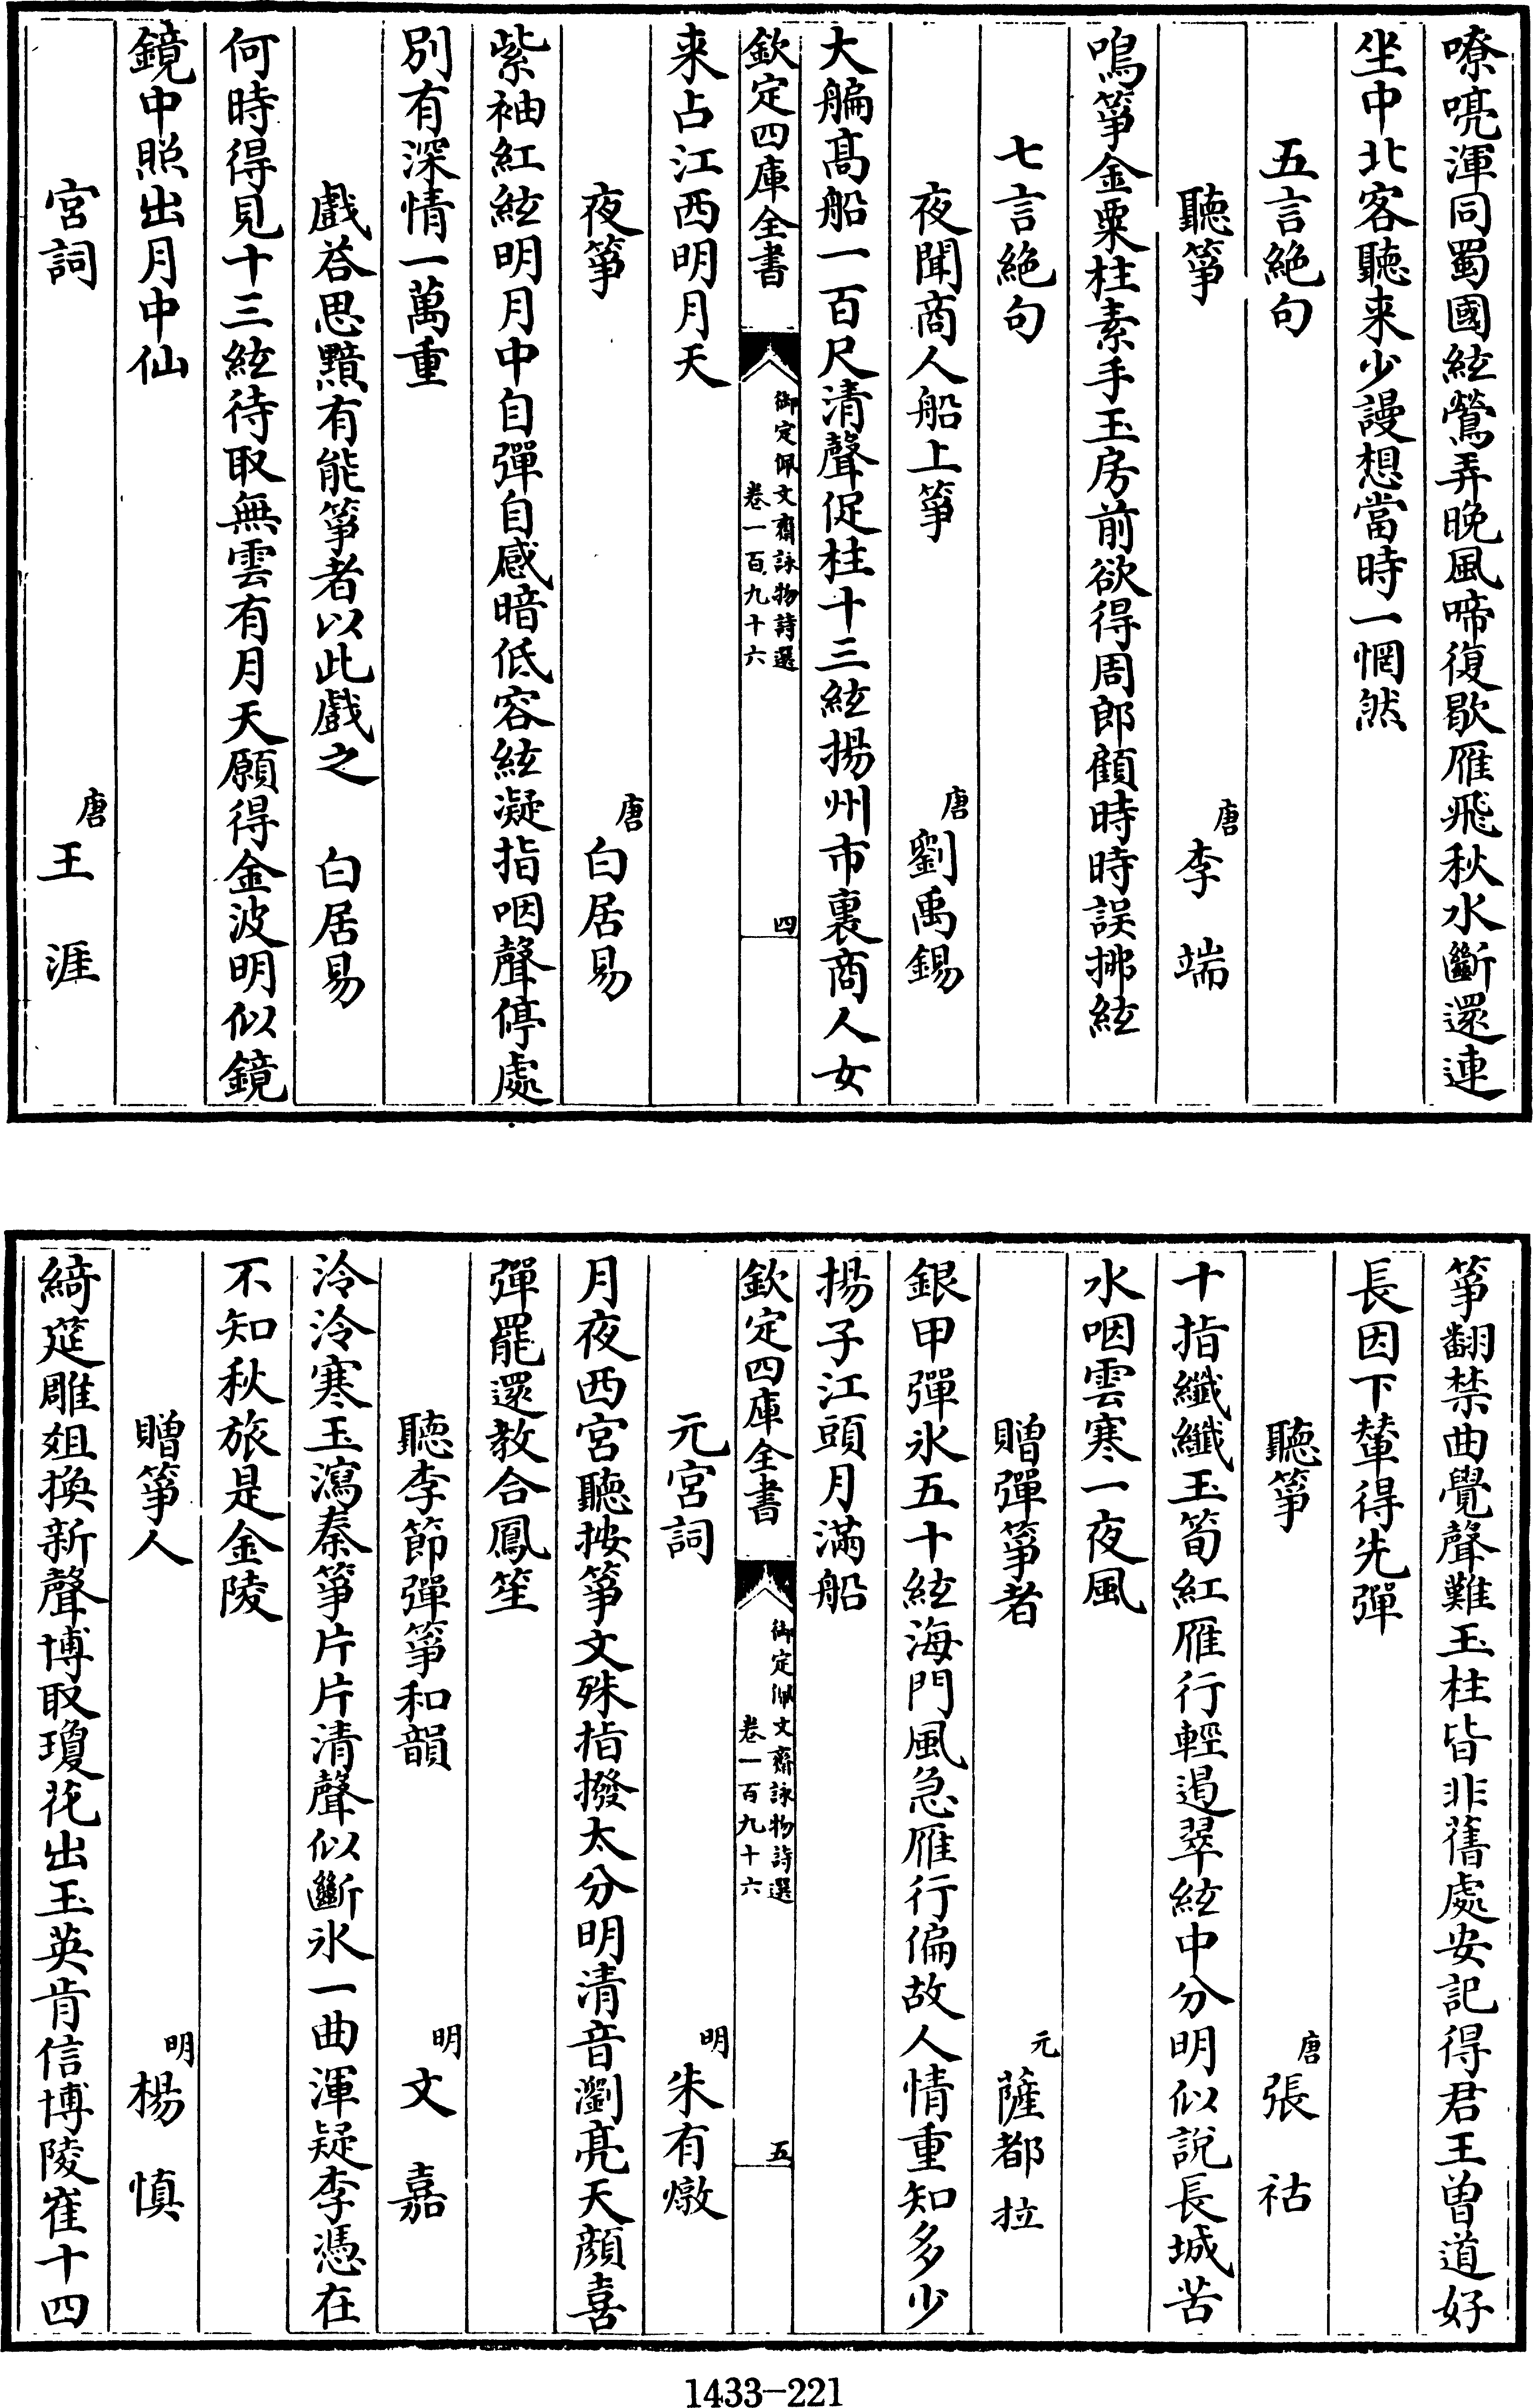 嘹喨渾同蜀國絃鶯弄晚風啼復歇雁飛秋水斷還連
坐中北客聽来少謾想當時一惘然
五言絶句
聽箏 唐李端
鳴箏金粟柱素手玉房前欲得周郎顧時時誤拂絃
七言絶句
夜聞商人船上箏 唐劉禹錫
大艑髙船一百尺清聲促柱十三絃揚州市裏商人女
欽定四庫全書 御定佩文齋詠物詩選 卷一百九十六 四
来占江西明月天
夜箏 唐白居易
紫袖紅絃明月中自彈自感暗低容絃凝指咽聲停處
別有深情一萬重
戲荅思黯有能箏者以此戲之 白居易
何時得見十三絃待取無雲有月天願得金波明似鏡
鏡中照出月中仙
宮詞 唐王涯
箏翻禁曲覺聲難玉柱皆非舊處安記得君王曾道好
長因下輦得先彈
聽箏 唐張祜
十指纖纖玉筍紅雁行輕遏翠絃中分明似說長城苦
水咽雲寒一夜風
贈彈箏者 元薩都拉
銀甲彈氷五十絃海門風急雁行偏故人情重知多少
揚子江頭月滿船
欽定四庫全書 御定佩文齋詠物詩選 卷一百九十六 五
元宮詞 明朱有燉
月夜西宮聽按箏文殊指撥太分明清音瀏亮天顔喜
彈罷還教合鳳笙
聽李節彈箏和韻 明文嘉
泠泠寒玉瀉秦箏片片清聲似斷氷一曲渾疑李憑在
不知秋旅是金陵
贈箏人 明楊慎
綺筵雕俎換新聲博取瓊花出玉英肯信博陵崔十四
1433-221